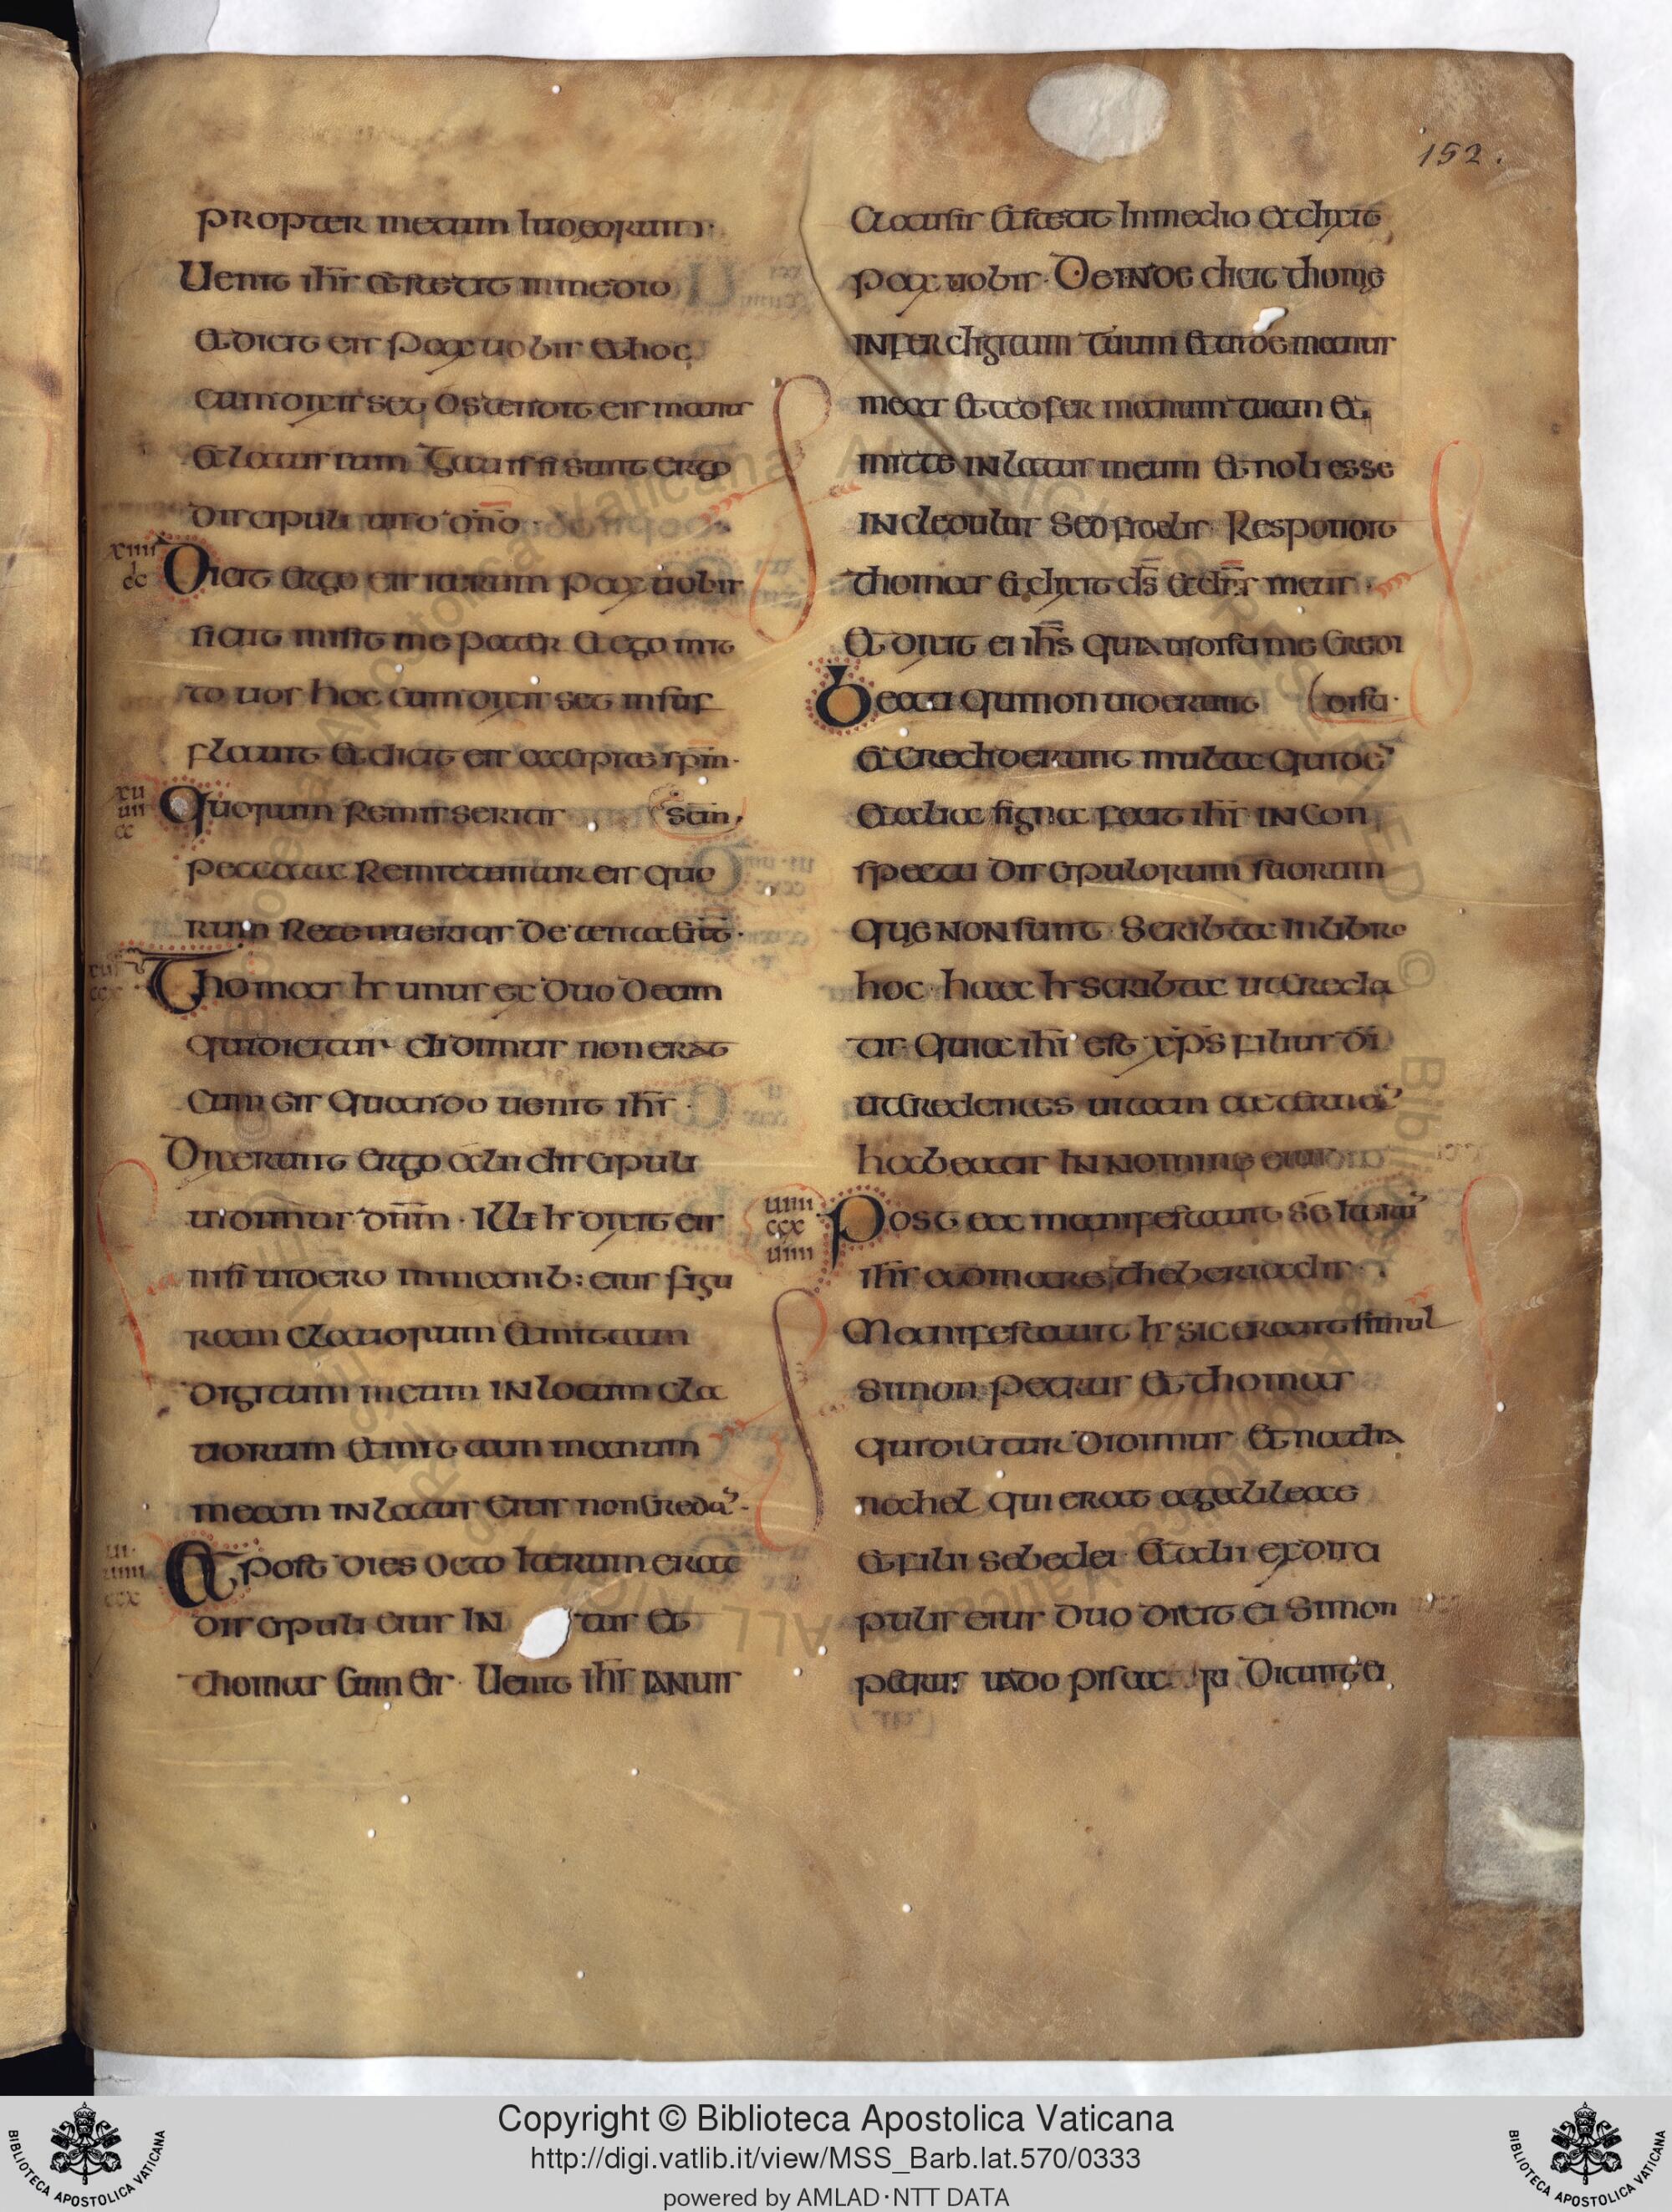 152.
propter metum iudeorum·
Uenit ihs et stetit in medio
et dicit eis pax uobis et hoc
cum dixisset ostendit eis manus
et latus suum Gauissi sunt ergo
discipuli uiso dno
xuiii
cc
Dicit ergo eis iterum pax uobis
sicut misit me pater et ego mit
to uos hoc cum dixisset insuf
flauit et dicit eis accipite spm·
xu
uii
Quorum remisseritis
scm
peccata remittuntur eis quo
rum retenueritis detenta sunt·
Thomas hr unus ex duodecim
qui dicitur didimus non erat
cum eis quando uenit ihs·
Dixerunt ergo alii discipuli
uidimus dnm· Ille hr dixit eis
nisi uidero in manib: eius figu
ram clauorum et mittam
digitum meum in locum cla
uorum et mittam manum
meam in latus eius non creda·
Et post dies octo iterum erat
discipuli eius in tus et
thomas cum eis· Uenit ihs ianuis
clausis et stetit in medio et dixit
pax uobis· Deinde dicit thome
infer digitum tuum et uide manus
meas et adfer manum tuam et
mitte in latus meum et noli esse
incredulus sed fidelis· Respondit
thomas et dixit ds et dns meus·
et dixit ei ihs quia uidisti me credi
Beati qui non uiderunt
disti·
et crediderunt multa quide
et alia signa fecit ihs in con
spectu discipulorum suorum
que non sunt scribta in libro
hoc· haec hr scribta ut creda
tis quia ihs est xps filius di
ut credentes uitam aeterna
habeatis in nomine eius
uiiii
ccx
uiiii
Post ea manifestauit se iteru
ihs ad mare theberiadis·
Manifestauit hr sic erant simul
simon petrus et thomas
qui dicitur didimus et natha
nahel qui erat a galileae
et filii sebedei et alii ex disci
pulis eius duo dicit ei simon
petrus uado pis ri Dicunt ei
Copyright © Biblioteca Apostolica Vaticana
http://digi.vatlib.it/view/MSS_Barb.lat.570/0333
powered by AMLAD·NTT DATA
BIBLIOTECA APOSTOLICA VATICANA
BIBLIOTECA APOSTOLICA VATICANA